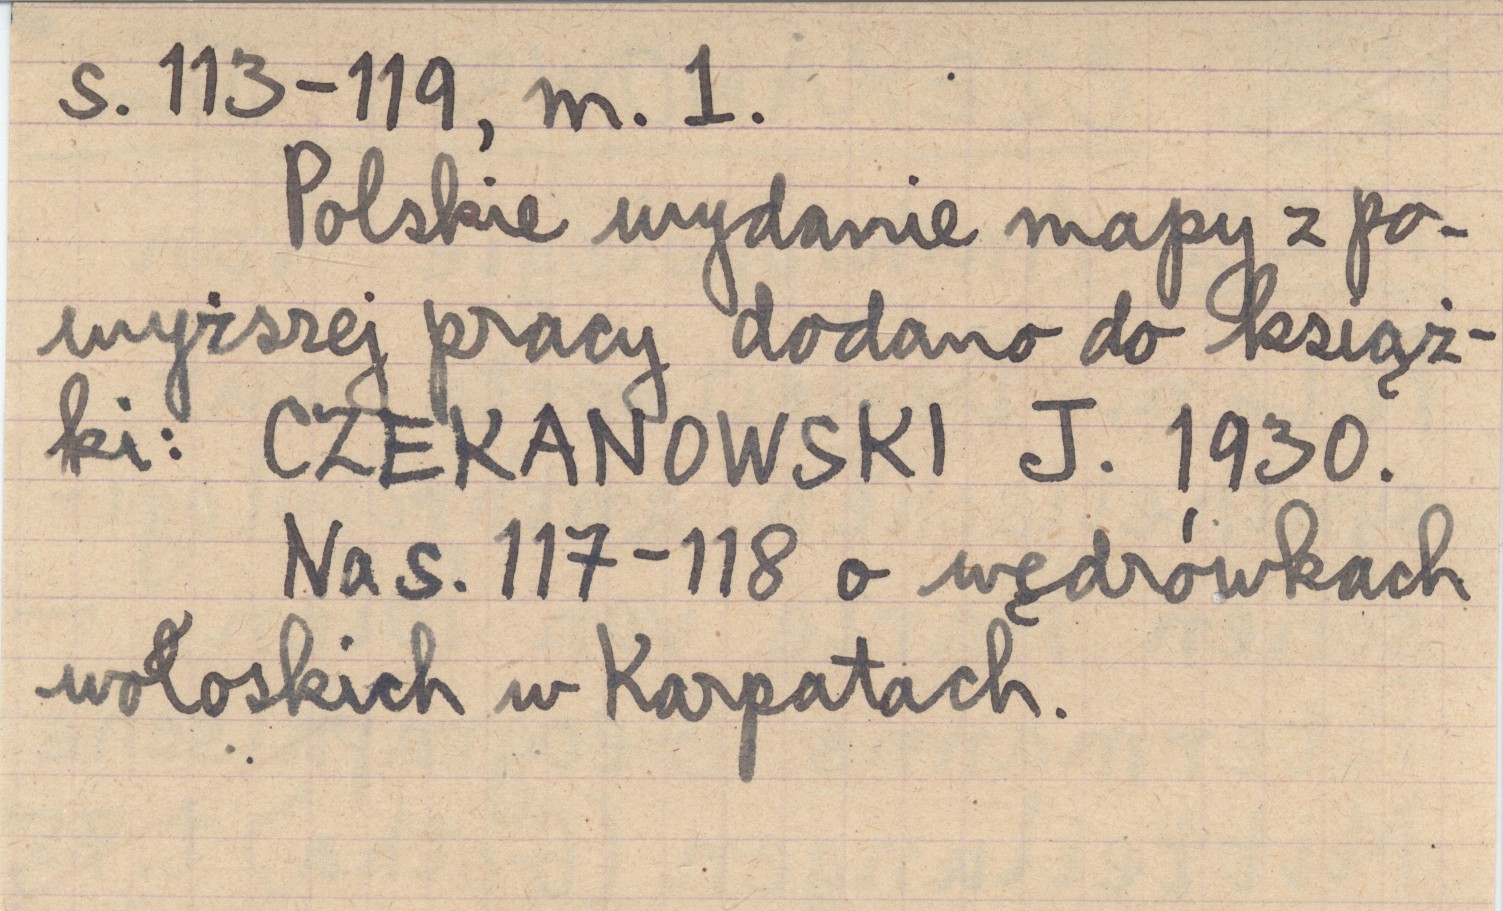 s. 113-119, m. 1.
Polskie wydanie mapy z po-
wyższej pracy dodano do książ-
ki: CZEKANOWSKI J. 1930.
Na s. 117-118 o wędrówkach
wołoskich w Karpatach.